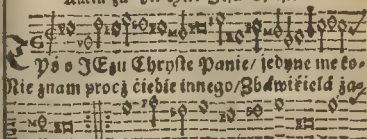 Pś o JEzu Chryste Panie/ jedyne me ko⸗
Nie znam procż ćiebie innego/Zbáwićielá żą⸗